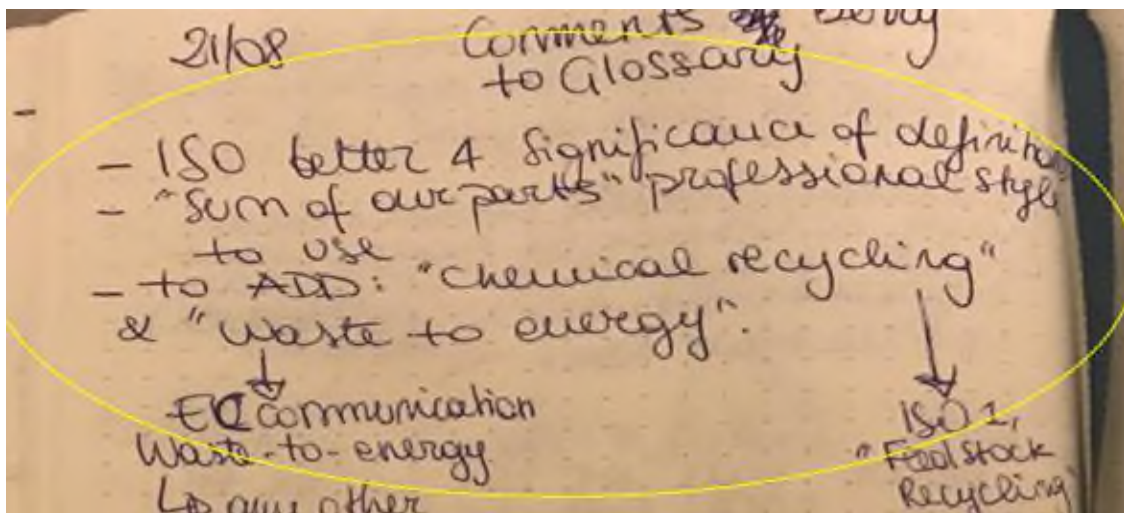 21/08
Comments
to Glossary
- ISO better 4 Significance of definition
- "Sum of our parts" professional style
to use
- to ADD: "chemical recycling"
& "Waste to energy".
EC communication
Waste-to-energy
any other
ISO 1,
"Feedstock
Recycling"